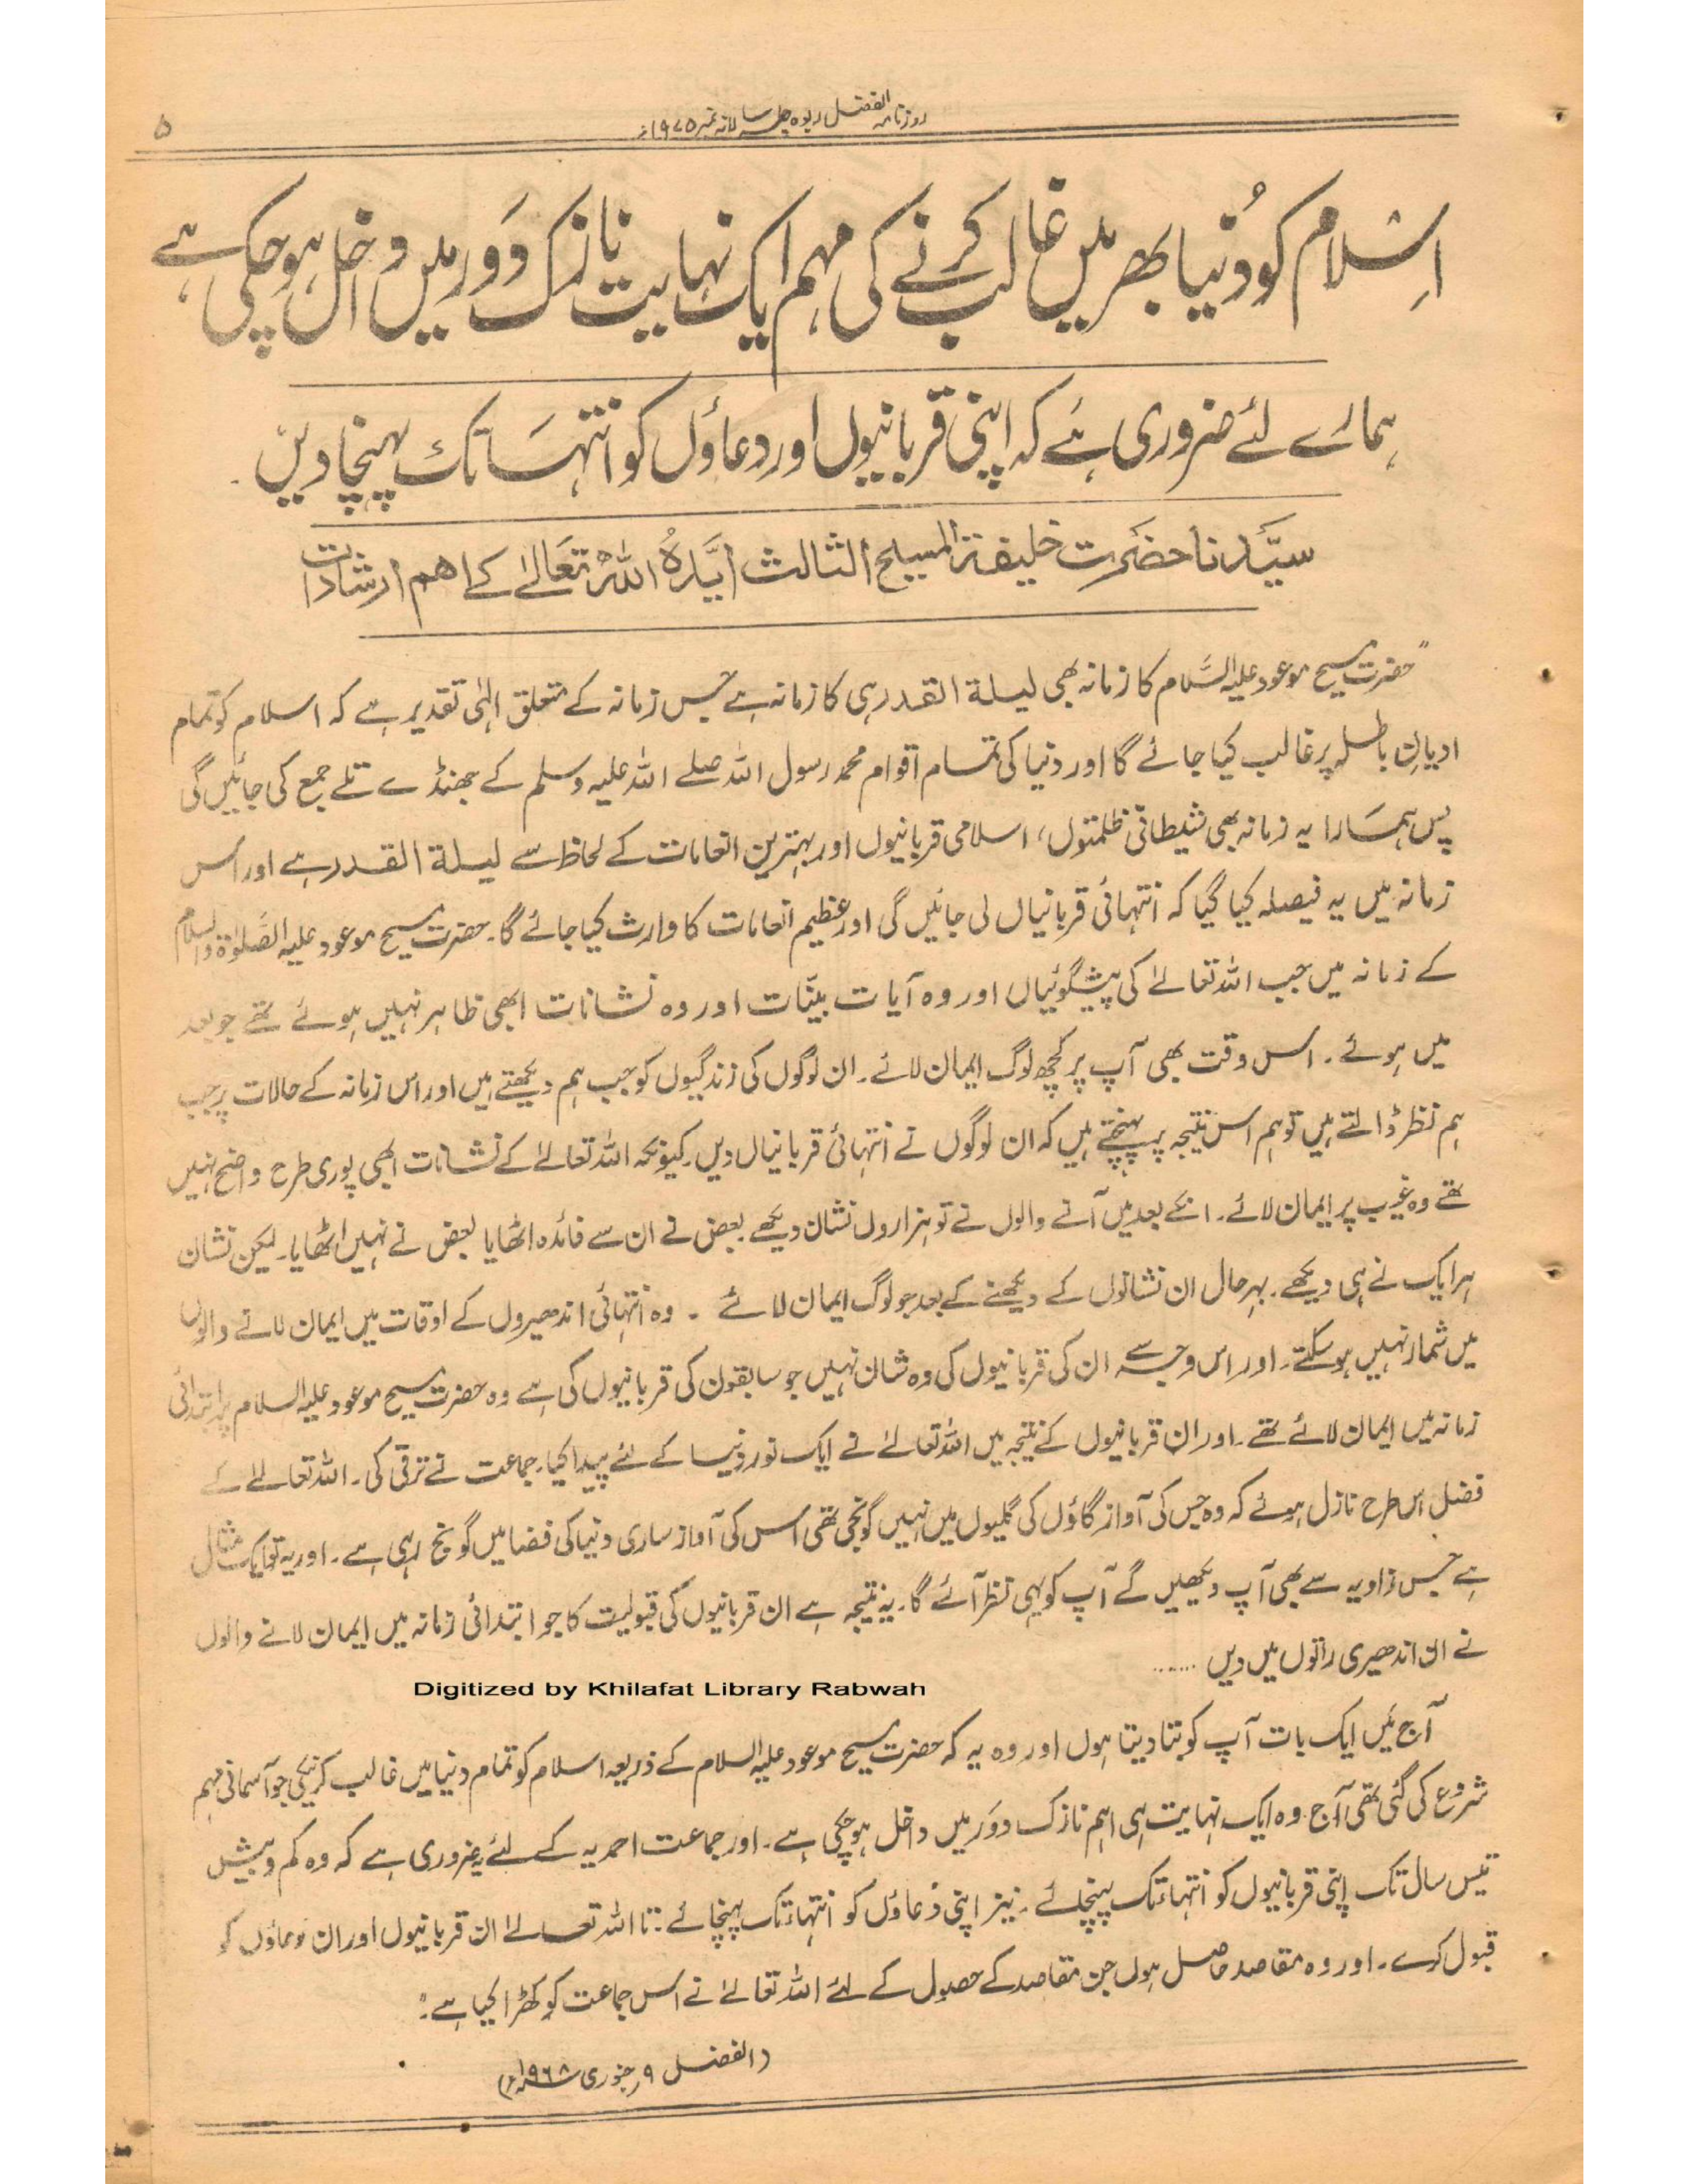 روزنامہ الفضل ربوہ جلسہ سالانہ نمبر ۱۹۷۵ء
۵
اِسْلام کو دُنیا بھر میں غالب کرنے کی مہم ایک نہایت نازک دَور میں داخل ہو چکی ہے
ہمارے لئے ضروری ہے کہ اپنی قربانیوں اور دعاؤں کو انتہا تک پہنچا دیں
سیّدنا حضرت خلیفۃ المسیح الثالث ایّدہُ اللہُ تعالےٰ کے اہم ارشادات
"حضرت مسیح موعود علیہ السَّلام کا زمانہ بھی لیلۃ القدر ہی کا زمانہ ہے جس زمانہ کے متعلق الٰہی تقدیر ہے کہ اسلام کو تمام
ادیانِ باطلہ پر غالب کیا جائے گا اور دنیا کی تمام اقوام محمد رسول اللہ صلے اللہ علیہ وسلم کے جھنڈے تلے جمع کی جائیں گی
پس ہمارا یہ زمانہ بھی شیطانی ظلمتوں، اسلامی قربانیوں اور بہترین انعامات کے لحاظ سے لیلۃ القدر ہے اور اس
زمانہ میں یہ فیصلہ کیا گیا کہ انتہائی قربانیاں لی جائیں گی اور عظیم انعامات کا وارث کیا جائے گا۔ حضرت مسیح موعود علیہ الصَّلوٰۃ والسلام
کے زمانہ میں جب اللہ تعالےٰ کی پیشگوئیاں اور وہ آیات بینّات اور وہ نشانات ابھی ظاہر نہیں ہوئے تھے جو بعد
میں ہوئے۔ اس وقت بھی آپ پر کچھ لوگ ایمان لائے۔ ان لوگوں کی زندگیوں کو جب ہم دیکھتے ہیں اور اس زمانہ کے حالات پر جب
ہم نظر ڈالتے ہیں تو ہم اس نتیجہ پر پہنچتے ہیں کہ ان لوگوں نے انتہائی قربانیاں دیں۔ کیونکہ اللہ تعالےٰ کے نشانات ابھی پوری طرح واضح نہیں
تھے وہ غیب پر ایمان لائے۔ انکے بعد میں آنے والوں نے تو ہزاروں نشان دیکھے بعض نے ان سے فائدہ اٹھایا بعض نے نہیں اٹھایا۔ لیکن نشان
ہر ایک نے ہی دیکھے۔ بہرحال ان نشانوں کے دیکھنے کے بعد جو لوگ ایمان لائے ۔ وہ انتہائی اندھیروں کے اوقات میں ایمان لانے والوں
میں شمار نہیں ہو سکتے۔ اور اس وجہ سے ان کی قربانیوں کی وہ شان نہیں جو سابقون کی قربانیوں کی ہے وہ حضرت مسیح موعود علیہ السلام پر ابتدائی
زمانہ میں ایمان لائے تھے۔ اور ان قربانیوں کے نتیجہ میں اللہ تعالےٰ نے ایک نور دنیا کے لئے پیدا کیا۔ جماعت نے ترقی کی۔ اللہ تعالےٰ کے
فضل اس طرح نازل ہوئے کہ وہ جس کی آواز گاؤں کی گلیوں میں نہیں گونجی تھی اس کی آواز ساری دنیا کی فضا میں گونج رہی ہے۔ اور یہ تو ایک مثال
ہے جس زاویہ سے بھی آپ دیکھیں گے آپ کو یہی نظر آئے گا۔ یہ نتیجہ ہے ان قربانیوں کی قبولیت کا جو ابتدائی زمانہ میں ایمان لانے والوں
نے ان اندھیری راتوں میں دیں .......
Digitized by Khilafat Library Rabwah
آج مَیں ایک بات آپ کو بتا دیتا ہوں اور وہ یہ کہ حضرت مسیح موعود علیہ السلام کے ذریعہ اسلام کو تمام دنیا میں غالب کرنیکی جو آسمانی مہم
شروع کی گئی تھی آج وہ ایک نہایت ہی اہم نازک دَور میں داخل ہو چکی ہے۔ اور جماعت احمدیہ کے لئے یہ ضروری ہے کہ وہ کم و بیش
تیس سال تک اپنی قربانیوں کو انتہاء تک پہنچائے۔ نیز اپنی دُعاؤں کو انتہاء تک پہنچائے۔ تا اللہ تعالےٰ ان قربانیوں اور ان دعاؤں کو
قبول کرے۔ اور وہ مقاصد حاصل ہوں جن مقاصد کے حصول کے لئے اللہ تعالےٰ نے اس جماعت کو کھڑا کیا ہے۔"
(الفضل ۹ر جنوری ۱۹۶۸ء)